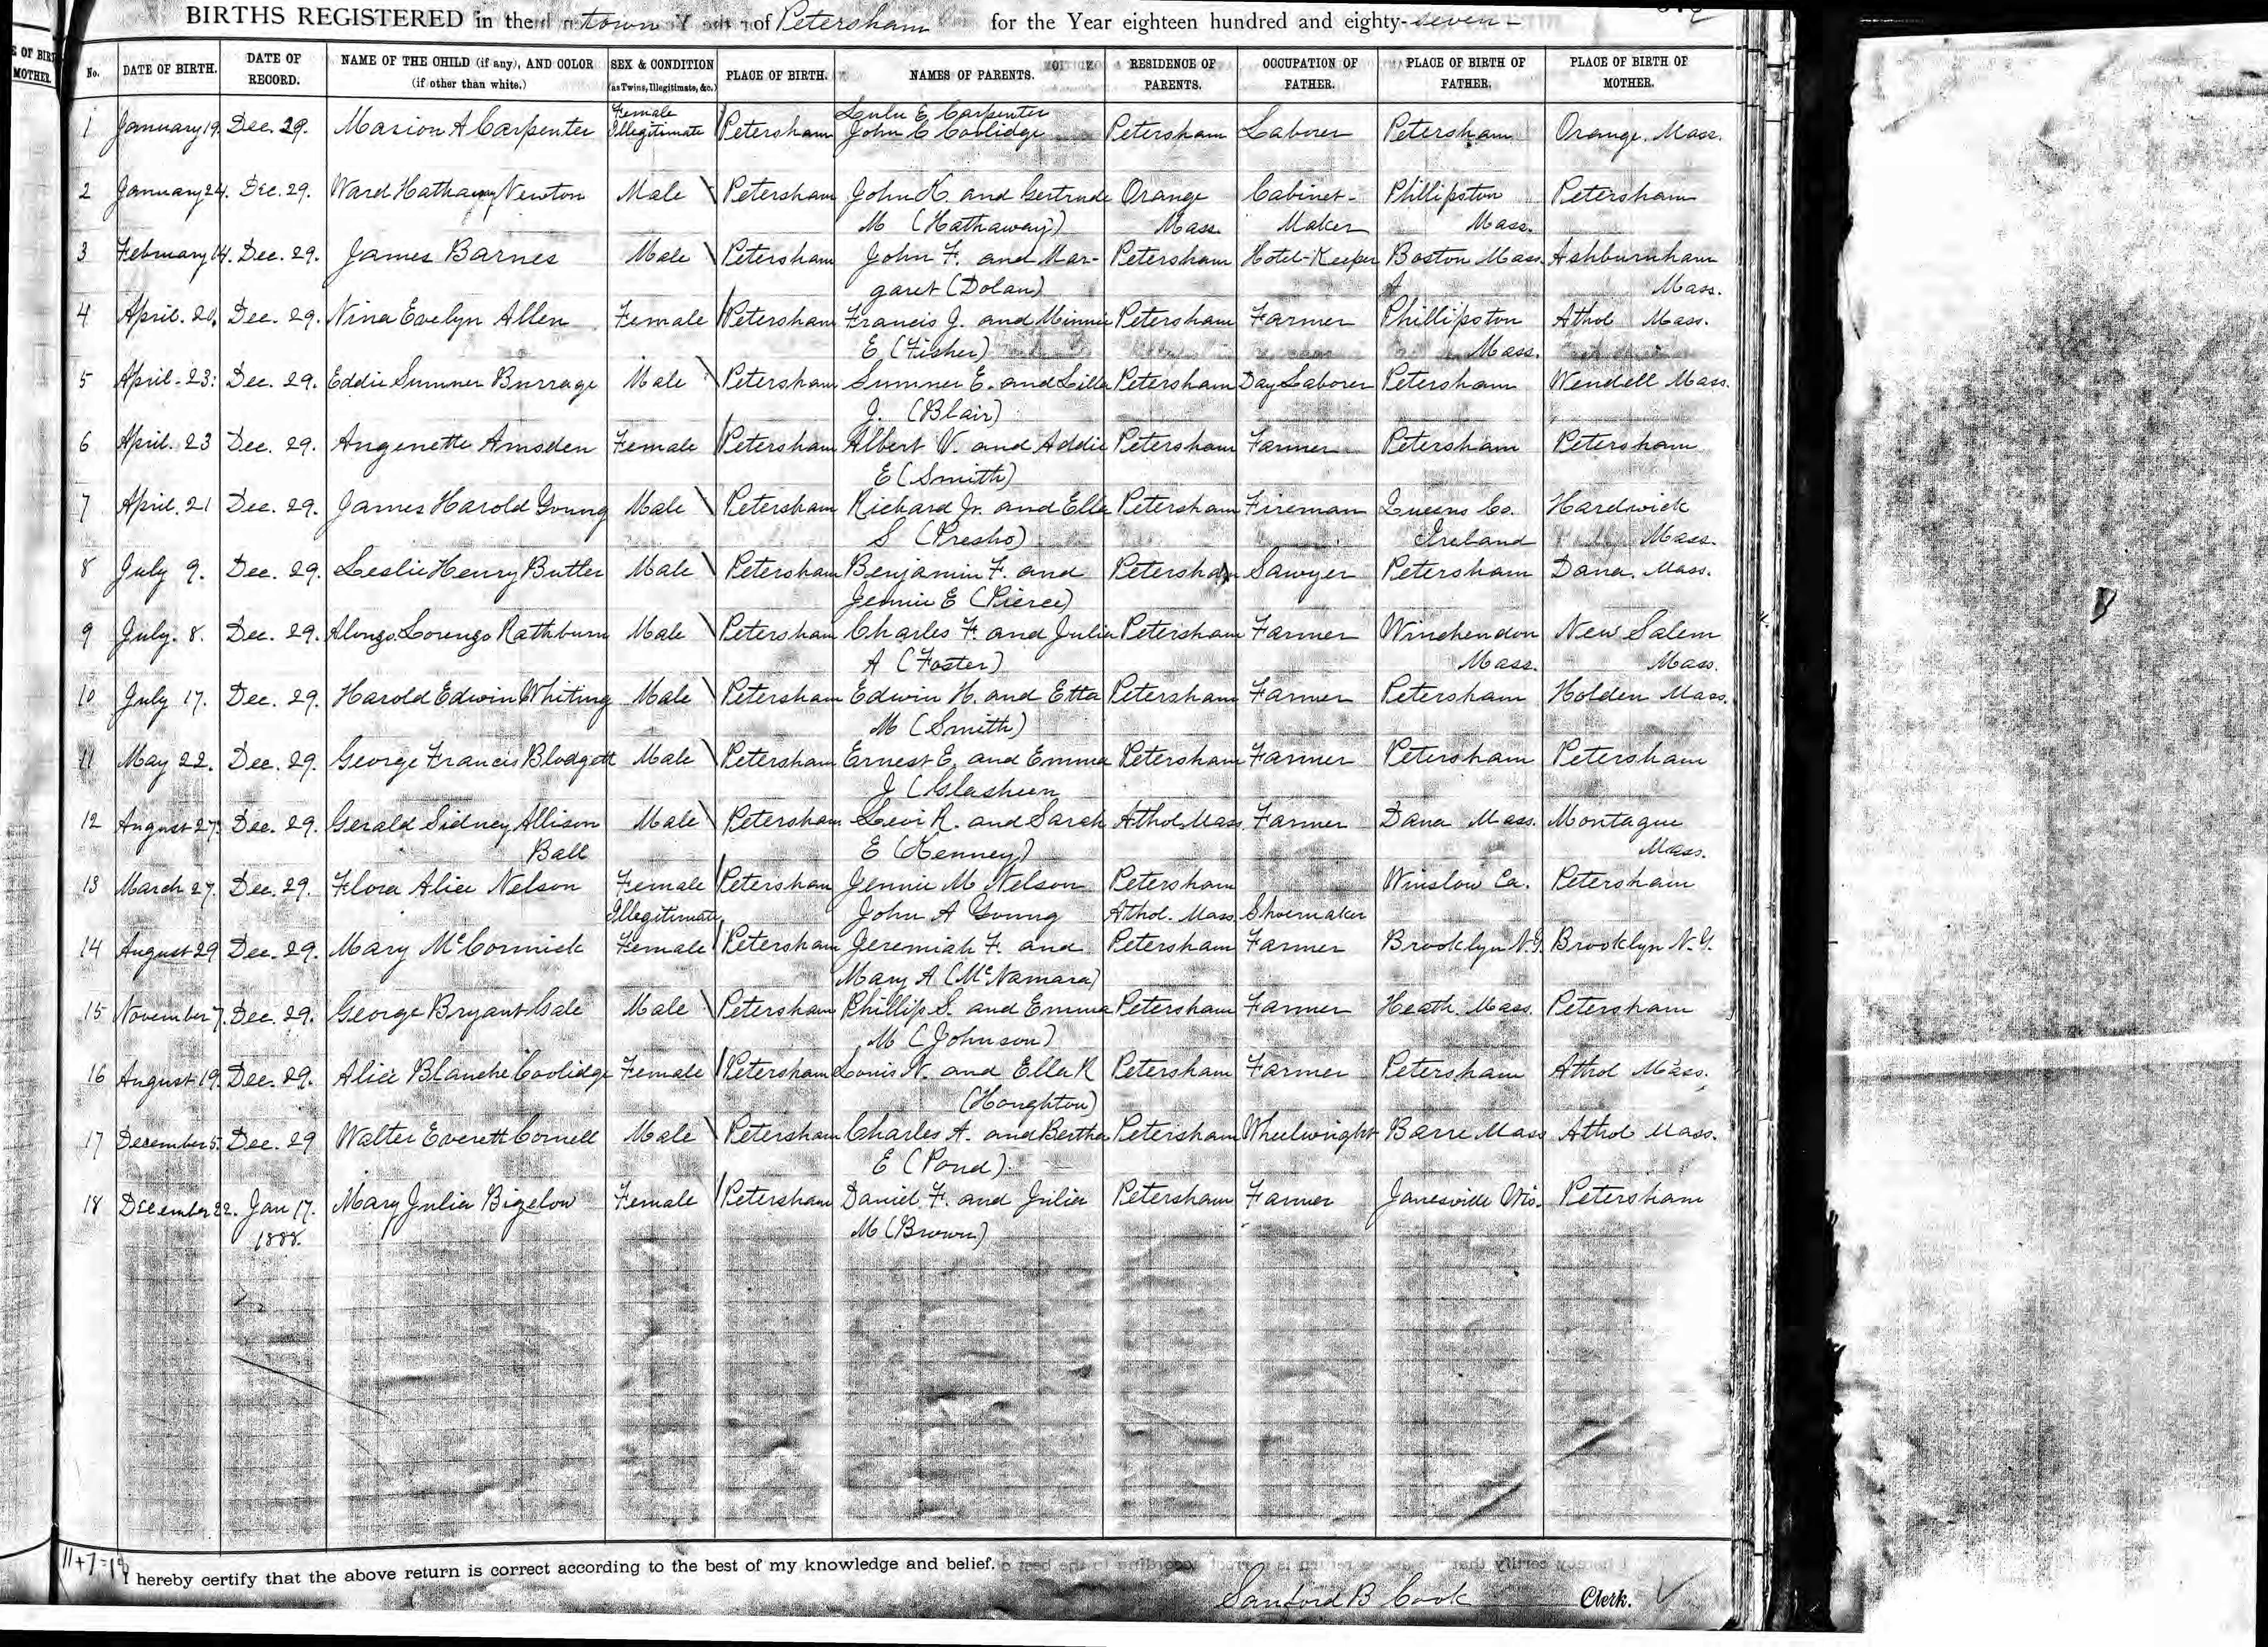 BIRTHS REGISTERED in the town of Petersham for the Year eighteen hundred and eighty-seven-
E OF BIRT
MOTHER.
No. DATE OF BIRTH. DATE OF RECORD. NAME OF THE CHILD (if any), AND COLOR (if other than white.) SEX & CONDITION (as Twins, Illegitimate, &c.) PLACE OF BIRTH. NAMES OF PARENTS. RESIDENCE OF PARENTS. OCCUPATION OF FATHER. PLACE OF BIRTH OF FATHER. PLACE OF BIRTH OF MOTHER.
Female Lulu E. Carpenter
1 January 19. Dec. 29. Marion A Carpenter Illegitimate Petersham John C Coolidge Petersham Laborer Petersham Orange. Mass.
2 January 24. Dec. 29. Ward Hathaway Newton Male Petersham John K. and Gertrude Orange Cabinet- Phillipston Petersham
M (Hathaway) Mass. Maker Mass.
3 February 14. Dec. 29. James Barnes Male Petersham John F. and Mar- Petersham Hotel-Keeper Boston Mass. Ashburnham
garet (Dolan) Mass.
4 April. 20. Dec. 29. Nina Evelyn Allen Female Petersham Francis J. and Minnie Petersham Farmer Phillipston Athol Mass.
E (Fisher) Mass.
5 April-23. Dec. 29. Eddie Sumner Burrage Male Petersham Sumner E. and Lilla Petersham Day Laborer Petersham Wendell Mass.
J. (Blair)
6 April. 23 Dec. 29. Angenette Amsden Female Petersham Albert V. and Addie Petersham Farmer Petersham Petersham
E (Smith)
7 April. 21 Dec. 29. James Harold Young Male Petersham Richard Jr. and Ella Petersham Fireman Queens Co. Hardwick
S (Presho) Ireland Mass.
8 July 9. Dec. 29. Leslie Henry Butler Male Petersham Benjamin F. and Petersham Sawyer Petersham Dana. Mass.
Jennie E (Pierce)
9 July. 8. Dec. 29. Alonzo Lorenzo Rathburn Male Petersham Charles F. and Julia Petersham Farmer Winchendon New Salem
A (Foster) Mass. Mass.
10 July 17. Dec. 29. Harold Edwin Whiting Male Petersham Edwin H. and Etta Petersham Farmer Petersham Holden Mass.
M (Smith)
11 May 22. Dec. 29. George Francis Blodgett Male Petersham Ernest E. and Emma Petersham Farmer Petersham Petersham
J (Glasheen
12 August 27. Dec. 29. Gerald Sidney Allison Male Petersham Levi R. and Sarah Athol Mass Farmer Dana Mass. Montague
Ball E (Kenney) Mass.
13 March 27. Dec. 29. Flora Alice Nelson Female Petersham Jennie M Nelson Petersham Winslow Ca. Petersham
Illegitimate John A Young Athol. Mass. Shoemaker
14 August 29 Dec. 29. Mary McCormick Female Petersham Jeremiah F. and Petersham Farmer Brooklyn N.Y. Brooklyn N.Y.
Mary A (McNamara)
15 November 7. Dec. 29. George Bryant Gale Male Petersham Phillip S. and Emma Petersham Farmer Heath. Mass. Petersham
M (Johnson)
16 August 19. Dec. 29. Alice Blanche Coolidge Female Petersham Louis N. and Ella R Petersham Farmer Petersham Athol Mass.
(Houghton)
17 December 5. Dec. 29 Walter Everett Cornell Male Petersham Charles A. and Bertha Petersham Wheelwright Barre Mass Athol Mass.
E (Pond)
18 December 22. Jan 17. Mary Julia Bigelow Female Petersham Daniel F. and Julia Petersham Farmer Janesville Wis. Petersham
1888. M (Brown)
11+7=18
I hereby certify that the above return is correct according to the best of my knowledge and belief.
Sanford B Cook Clerk.